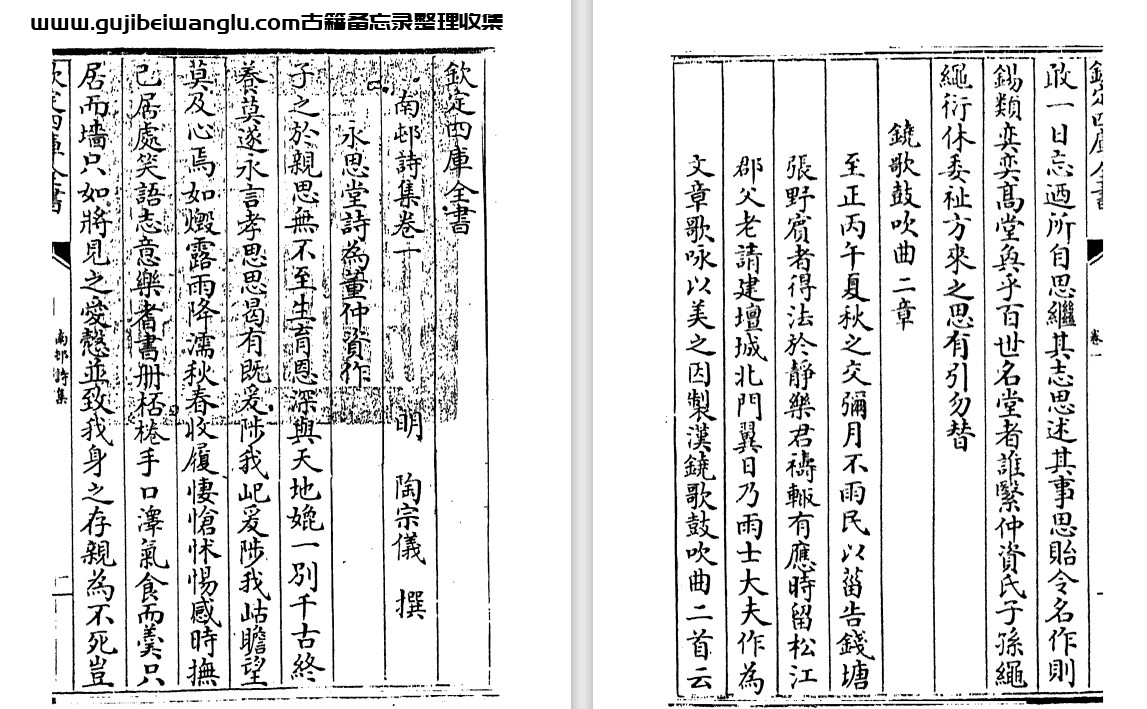 www.gujibeiwanglu.com古籍备忘录整理收集
欽定四庫全書
南邨詩集卷一
明 陶宗儀 撰
永思堂詩為董仲資作
子之於親思無不至生育恩深與天地媲一別千古終
養莫遂永言孝思思曷有既爰陟我屺爰陟我岵瞻望
莫及心焉如燬露雨降濡秋春收履悽愴怵惕感時撫
己居處笑語志意樂耆書册桮棬手口澤氣食而羹只
居而墻只如將見之愛慤並致我身之存親為不死豈
欽定四庫全書
南邨詩集
欽定四庫全書
卷一
敢一日忘迺所自思繼其志思述其事思貽令名作則
錫類奕奕髙堂與乎百世名堂者誰繄仲資氏子孫繩
繩衍休委祉方來之思有引勿替
鐃歌鼓吹曲二章
至正丙午夏秋之交彌月不雨民以菑告錢塘
張野賓者得法於靜樂君禱輙有應時留松江
郡父老請建壇城北門翼日乃雨士大夫作為
文章歌咏以美之因製漢鐃歌鼓吹曲二首云